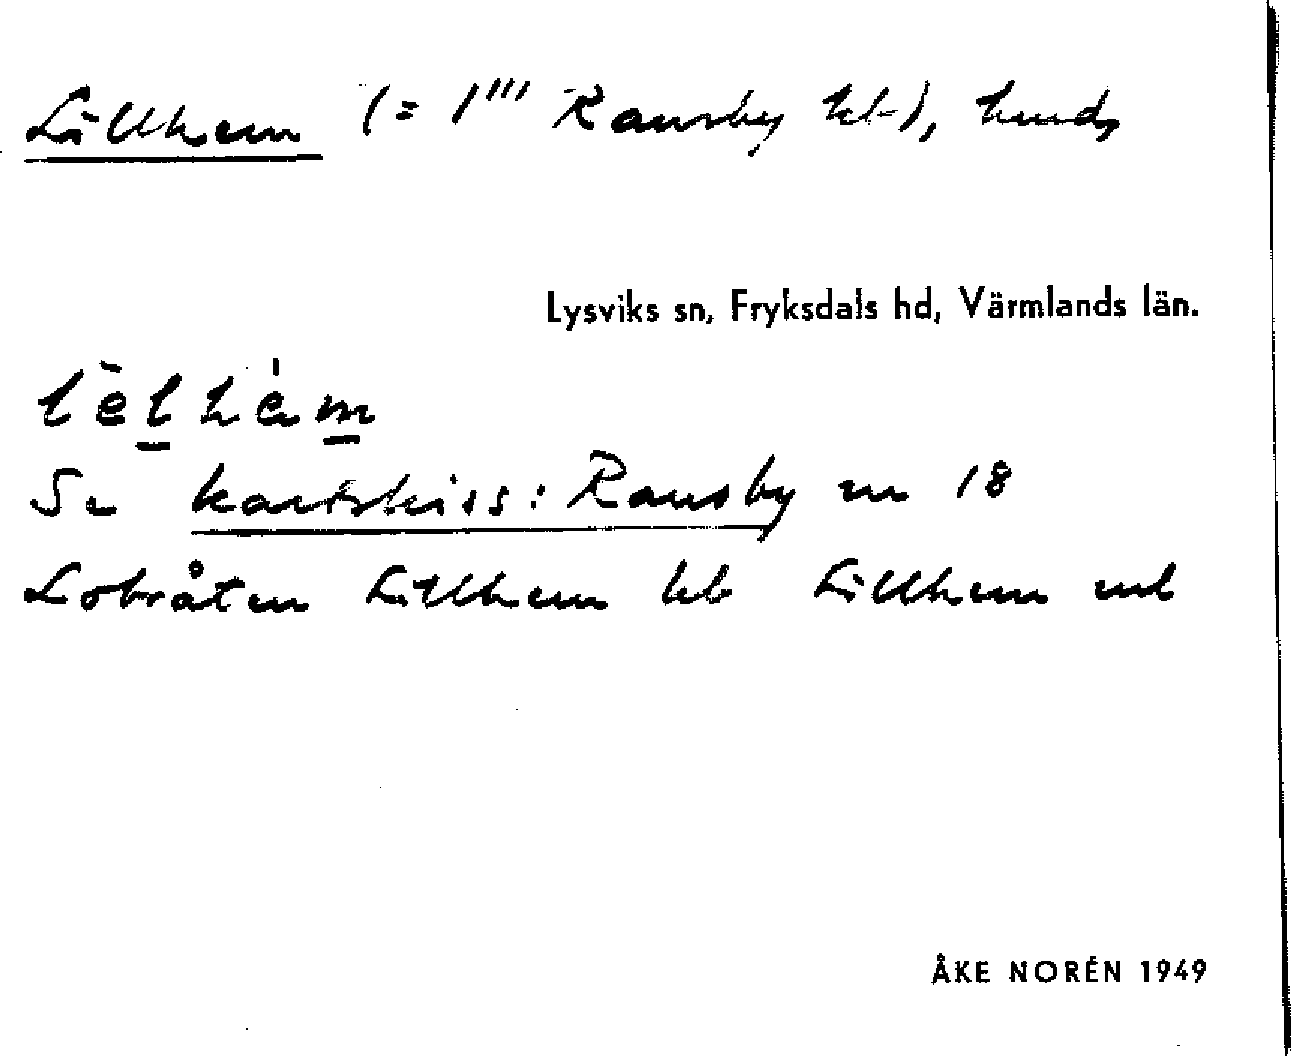 Lillhem (= 1''' Ransby kb), hmd,
Lysviks sn, Fryksdals hd, Värmlands län.
lèlhém
Se kartskiss: Ransby nr 18
Lobråten Lillhem kb Lillhem
ÅKE NORÉN 1949